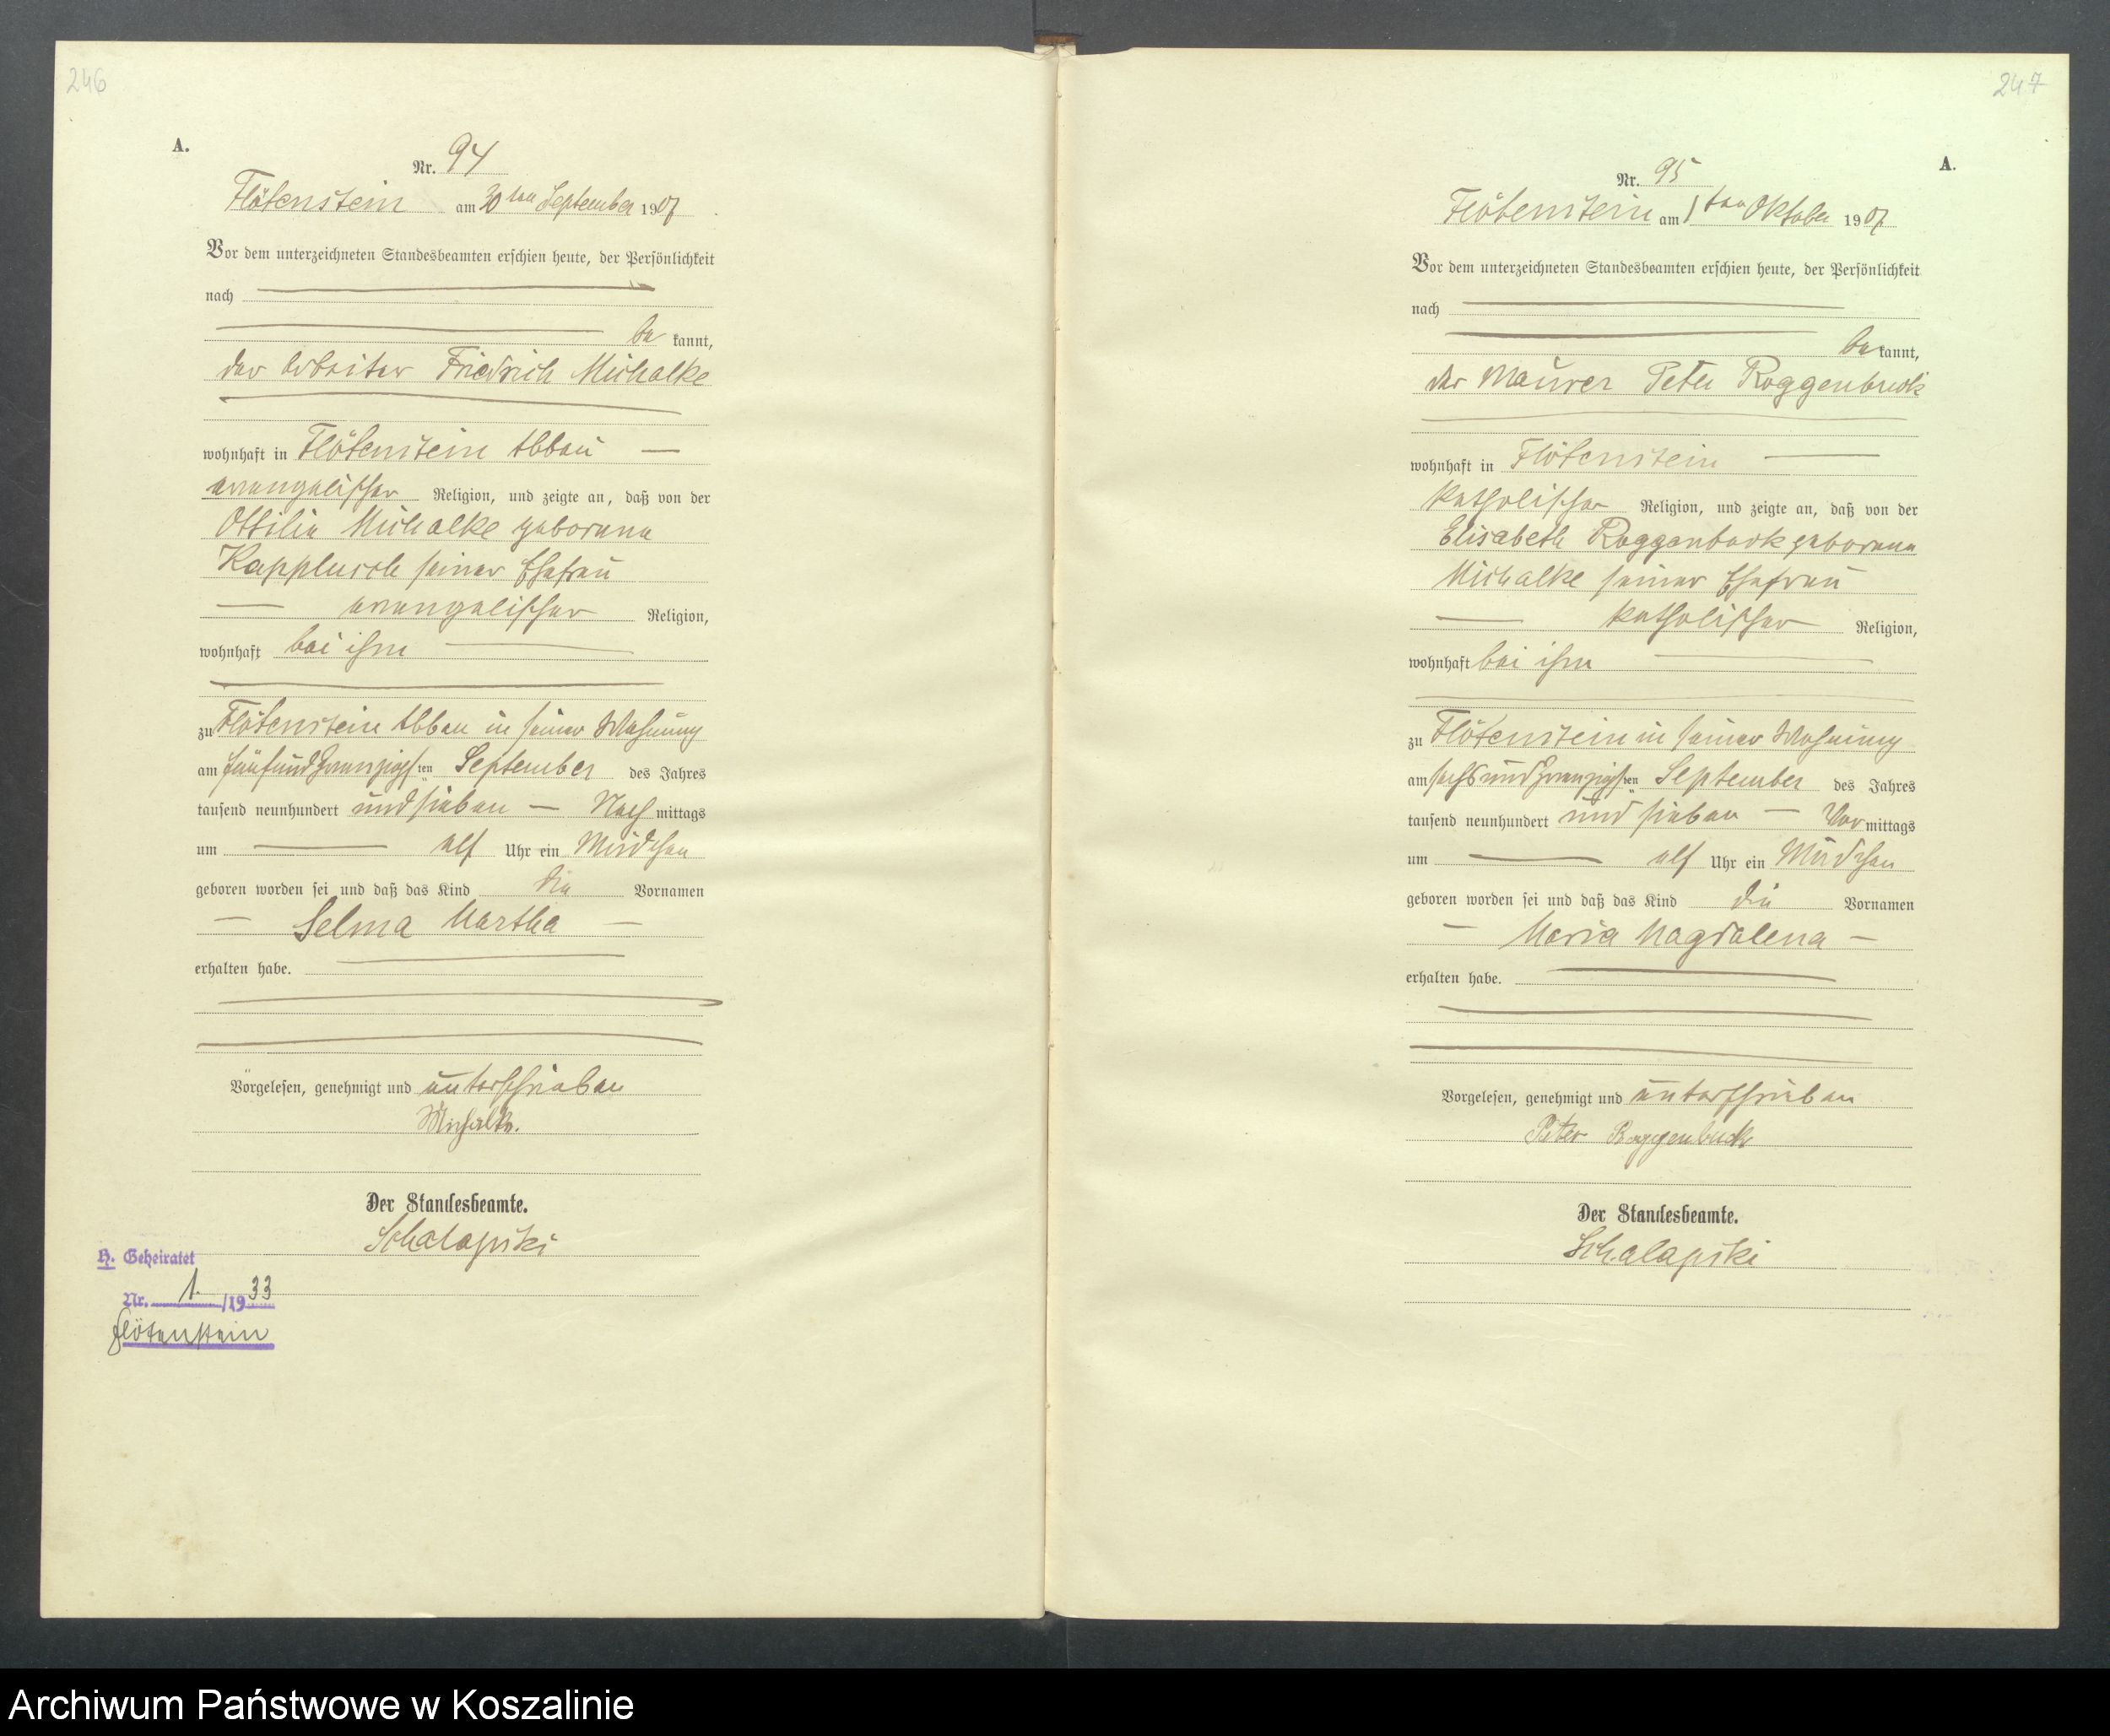 246
A.
Nr. 94
Flötenstein am 30ten September 1907
Vor dem unterzeichneten Standesbeamten erschien heute, der Persönlichkeit
nach
be kannt,
der Arbeiter Friedrich Michalke
wohnhaft in Flötenstein Abbau
evangelischer Religion, und zeigte an, daß von der
Ottilie Michalke geborene
Kapplusch seiner Ehefrau
evangelischer Religion,
wohnhaft bei ihm
zu Flötenstein Abbau in seiner Wohnung
am fünfundzwanzigsten September des Jahres
tausend neunhundert und sieben Nach mittags
um elf Uhr ein Mädchen
geboren worden sei und daß das Kind die Vornamen
Selma Martha
erhalten habe.
Vorgelesen, genehmigt und unterschrieben
Michalke.
Der Standesbeamte.
Schalapski
H. Geheiratet
Nr. 1. /1933
Flötenstein
247
A.
Nr. 95
Flötenstein am 1ten Oktober 1907
Vor dem unterzeichneten Standesbeamten erschien heute, der Persönlichkeit
nach
be kannt,
der Maurer Peter Roggenbuck
wohnhaft in Flötenstein
katholischer Religion, und zeigte an, daß von der
Elisabeth Roggenbuck geborene
Michalke seiner Ehefrau
katholischer Religion,
wohnhaft bei ihm
zu Flötenstein in seiner Wohnung
am sechsundzwanzigsten September des Jahres
tausend neunhundert und sieben Vor mittags
um elf Uhr ein Mädchen
geboren worden sei und daß das Kind die Vornamen
Maria Magdalena
erhalten habe.
Vorgelesen, genehmigt und unterschrieben
Peter Roggenbuck
Der Standesbeamte.
Schalapski
Archiwum Państwowe w Koszalinie